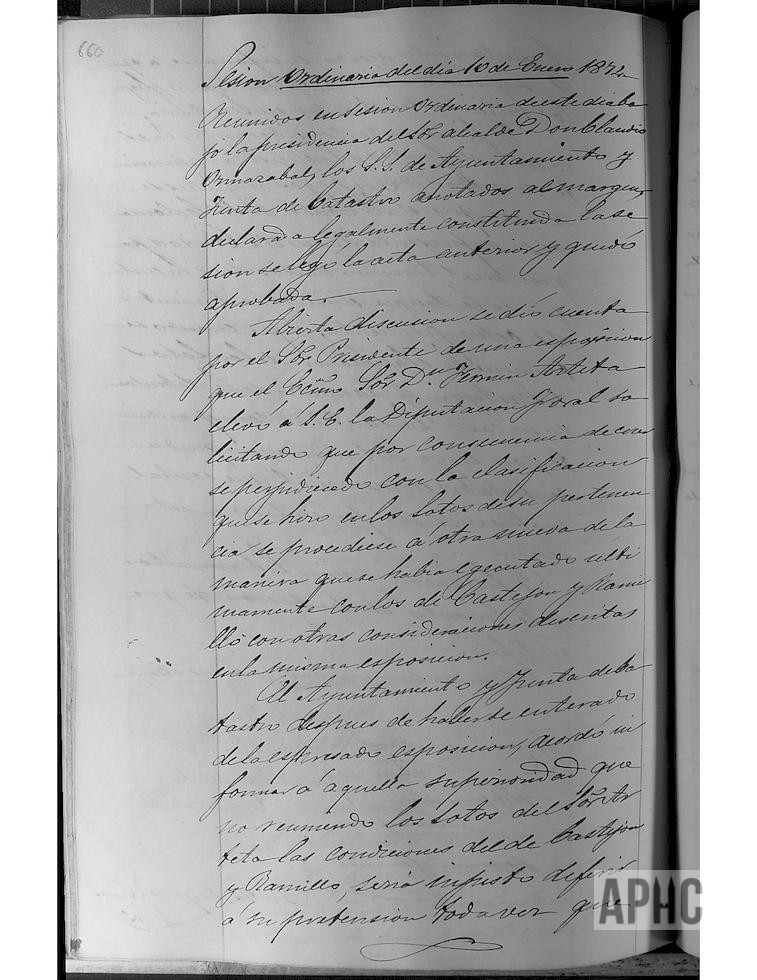 660
Sesion Ordinaria del dia 10 de Enero 1872
Reunidos en sesion Ordinaria de este dia ba
jo la presidencia del Sor alcalde Don Claudio
Ormazabal, los S.S. de Ayuntamiento y
Junta de Catastro anotados al margen,
declarada legalmente constituida la se
sion se leyó la acta anterior y quedó
aprobada.
Abierta discusion se dió cuenta
por el Sor Presidente de una esposicion
que el Ecmo Sor Dn Fermin Arteta
elevó á S.E. la Diputacion Foral so
licitando que por consecuencia de creer
se perjudicado con la clasificacion
que se hizo en los Sotos de su pertenen
cia se procediese á otra nueva de la
manera que se habia egecutado ulti
mamente con los de Castejon y Rami
llo con otras consideraciones descritas
en la misma esposicion.
El Ayuntamiento y Junta de Ca
tastro despues de haberse enterado
de la espresada esposicion, acordó in
formar á aquella superioridad que
no reuniendo los Sotos del Sor Ar
teta las condiciones del de Castejon
y Ramillo, seria injusto deferir
á su pretension toda vez que
APHC